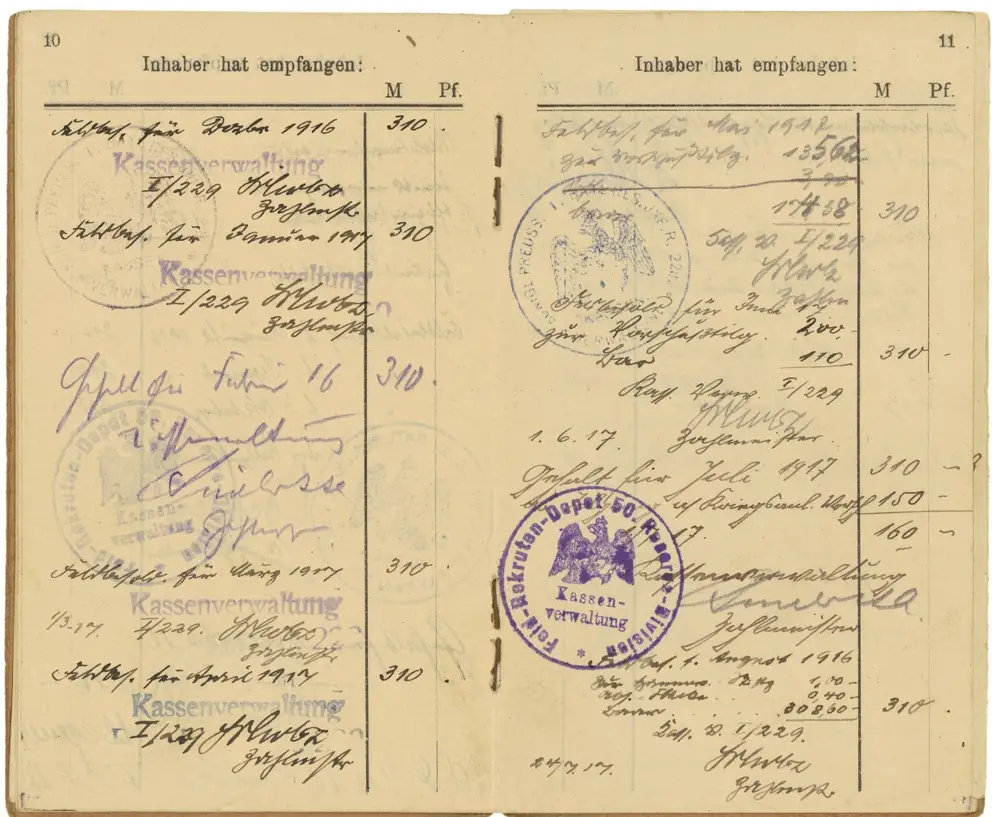 10
Inhaber hat empfangen:
M Pf.
Feldbes. für Dezbr 1916 310.
Kassenverwaltung
I/229
Zahlmstr.
Feldbes. für Januar 1917 310
Kassenverwaltung
I/229
Zahlmstr.
Gehalt für Febr. 16 310.
Kassenverwaltung
Feld-Rekruten-Depot 50.
Kassen-
verwaltung
Feldbesold für März 1917 310.
Kassenverwaltung
1/3.17. I/229.
Zahlmstr
Feldbes. für April 1917 310.
Kassenverwaltung
I/229
Zahlmstr
11
Inhaber hat empfangen:
M Pf.
Feldbes. für Mai 1917
zur Vorschußtilg. 135,62
3,90
bar 174 38 310
Kass. V. I/229
Zahlm
KÖNIGL. PREUSS. I. BATL. RES. INF. R. 229
Feldbesold für Juni 17
zur Vorschußtilg. 200.
bar 110 310 -
Kass. Verw. I/229
1.6.17. Zahlmeister.
Gehalt für Juli 1917 310 -
Kriegsanl. 150 -
17. 160 -
Kassenverwaltung
Zahlmeister
Feld-Rekruten-Depot 50. Reserve-Division *
Kassen-
verwaltung
Feldbes. f. August 1916
1,00 -
0,40 -
308,60 - 310.
Kass. V. I/229.
24.7.17.
Zahlmstr.